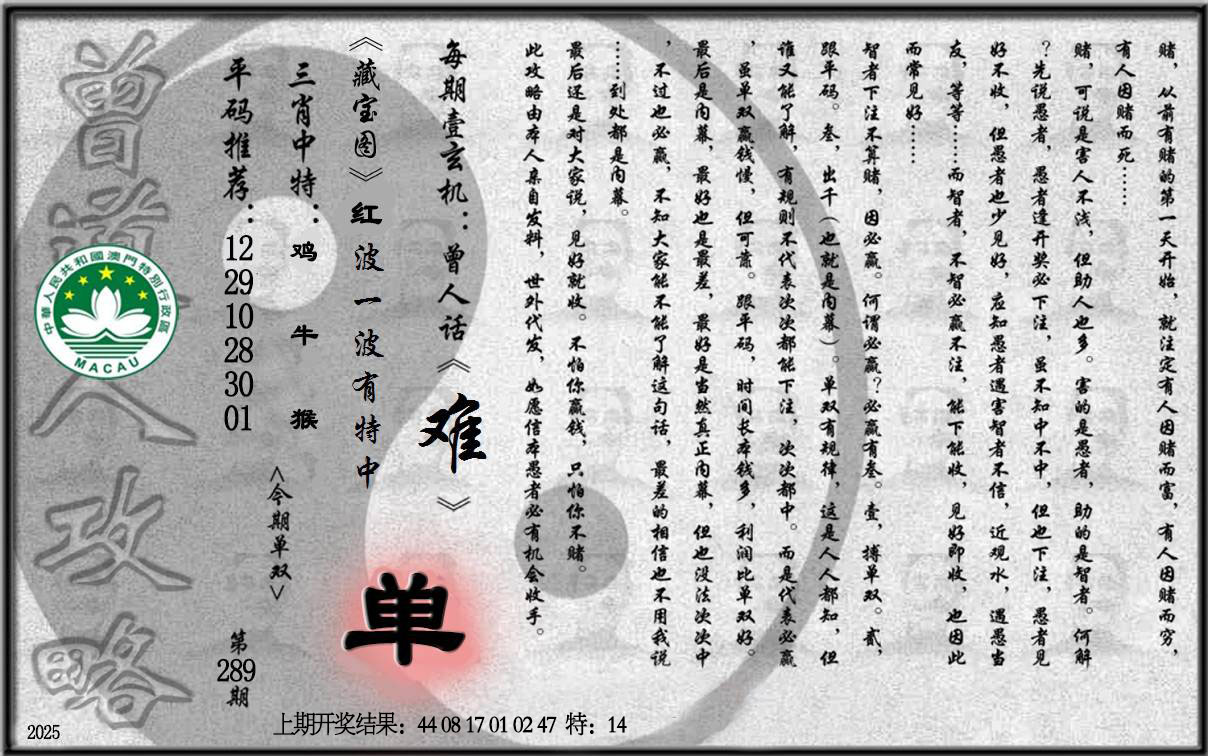 赌，从前有赌的第一天开始，就注定有人因赌而富，有人因赌而穷，
有人因赌而死……
赌，可说是害人不浅，但助人也多。害的是愚者，助的是智者。何解
？先说愚者，愚者逢开奖必下注，虽不知中不中，但也下注，愚者见
好不收，但愚者也少见好，应知愚者遇害智者不信，近观水，遇愚当
友，等等……而智者，不智必赢不注，能下能收，见好即收，也因此
而常见好……
智者下注不算赌，因必赢。何谓必赢？必赢有叁。壹，搏单双。贰，
跟平码。叁，出千（也就是内幕）。单双有规律，这是人人都知，但
谁又能了解，有规则不代表次次都能下注，次次都中。而是代表必赢
，虽单双赢钱慢，但可靠。跟平码，时间长本钱多，利润比单双好。
最后是内幕，最好也是最差，最好是当然真正内幕，但也没法次次中
，不过也必赢，不知大家能不能了解这句话，最差的相信也不用我说
……到处都是内幕。
最后还是对大家说，见好就收。不怕你赢钱，只怕你不赌。
此攻略由本人亲自发料，世外代发，如愿信本愚者必有机会收手。
每期壹玄机：曾人话《难》
《藏宝图》红波一波有特中
单
三肖中特：鸡 牛 猴
<今期单双>
平码推荐：12 29 10 28 30 01
第289期
曾道人攻略
中華人民共和國澳門特別行政區
MACAU
上期开奖结果：44 08 17 01 02 47 特：14
2025